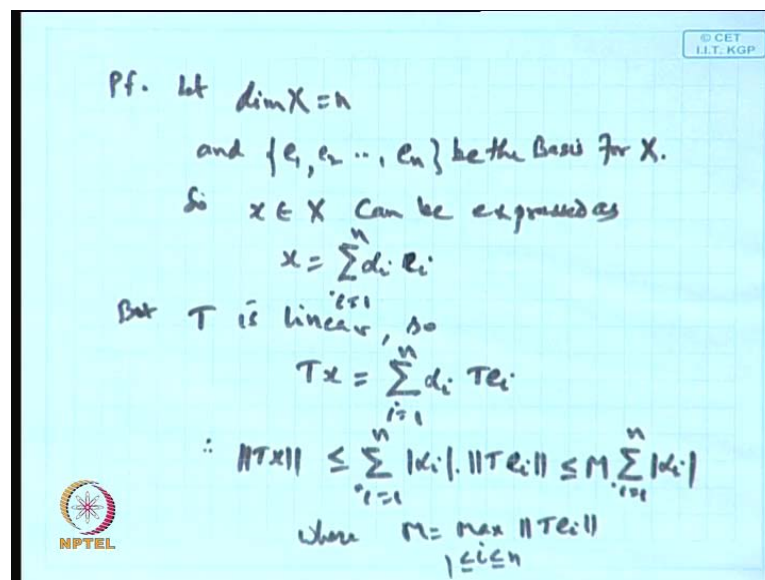 © CET
I.I.T. KGP
Pf. Let dim X = n
and {e1, e2 .., en} be the Basis for X.
So x ∈ X Can be expressed as
x = n∑i=1 αi ei
But T is linear, so
Tx = n∑i=1 αi Tei
∴ ||Tx|| ≤ n∑i=1 |αi|. ||Tei|| ≤ M n∑i=1 |αi|
where M = max 1≤i≤n ||Tei||
NPTEL